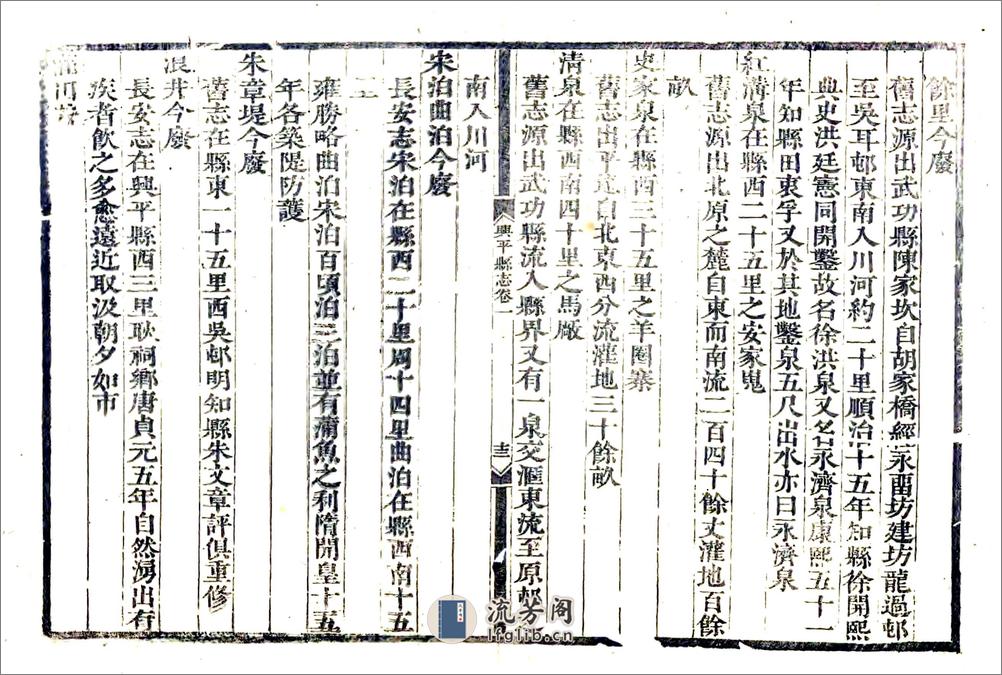 餘里今廢
舊志源出武功縣陳家坎自胡家橋經永畱坊建坊龍過邨
至吳耳邨東南入川河約二十里順治十五年知縣徐開熙
典史洪廷憲同開鑿故名徐洪泉又名永濟泉康熙五十一
年知縣田衷孚又於其地鑿泉五尺出水亦曰永濟泉
紅溝泉在縣西二十五里之安家嵬
舊志源出北原之麓自東而南流二百四十餘丈灌地百餘
畝
史家泉在縣西三十五里之羊圈寨
舊志出平地自北東西分流灌地三十餘畝
清泉在縣西南四十里之馬厰
舊志源出武功縣流入縣界又有一泉交滙東流至原邨
興平縣志卷一
南入川河
宋泊曲泊今廢
長安志宋泊在縣西二十里周十四里曲泊在縣西南十五
里
雍勝略曲泊宋泊百頃泊三泊並有蒲魚之利隋開皇十五
年各築隄防護
朱章堤今廢
舊志在縣東一十五里西吳邨明知縣朱文章評俱重修
浪井今廢
長安志在興平縣西三里耿祠鄉唐貞元五年自然湧出有
疾者飲之多愈遠近取汲朝夕如市
流芳阁
lfglib.cn